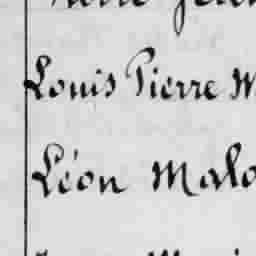 Louis Pierre M
Léon Malo